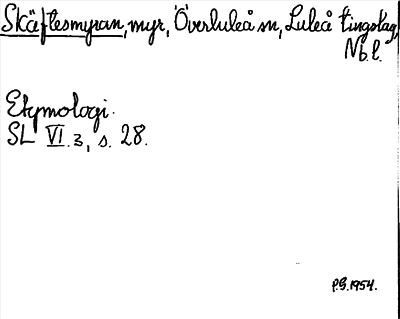 Skäftesmyran, myr, Överluleå sn, Luleå tingslag,
Nb.l.
Etymologi.
SL VI.3, s. 28.
P.G. 1954.